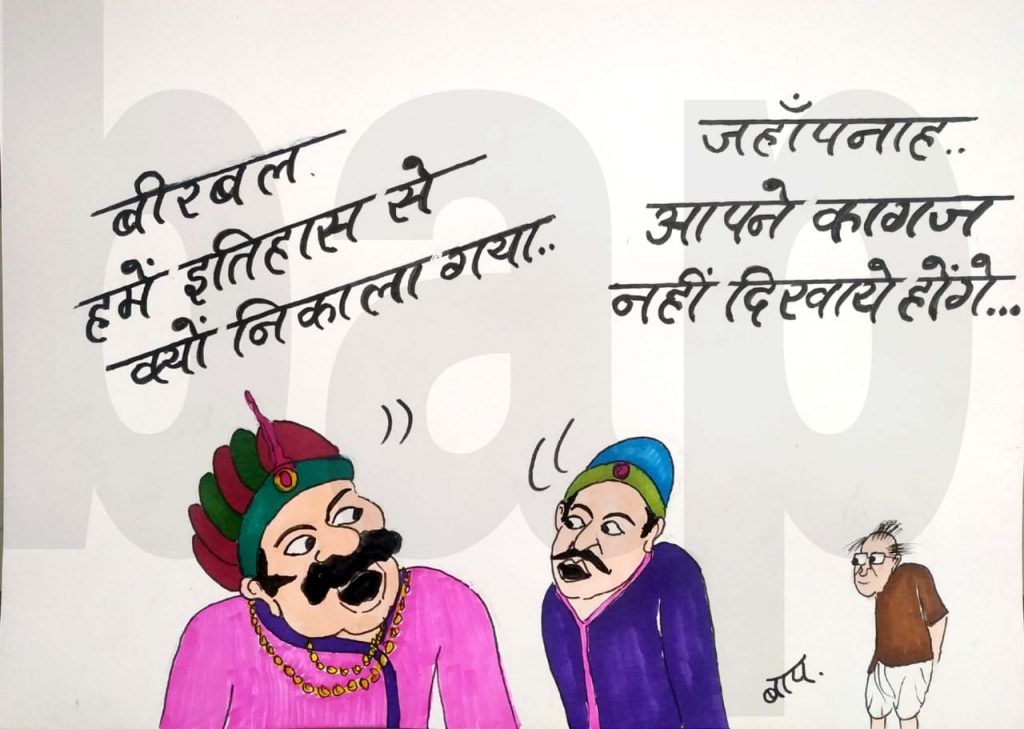 बीरबल.
हमें इतिहास से
क्यों निकाला गया..
जहाँपनाह..
आपने कागज
नहीं दिखाये होंगे...
बाप.
bap